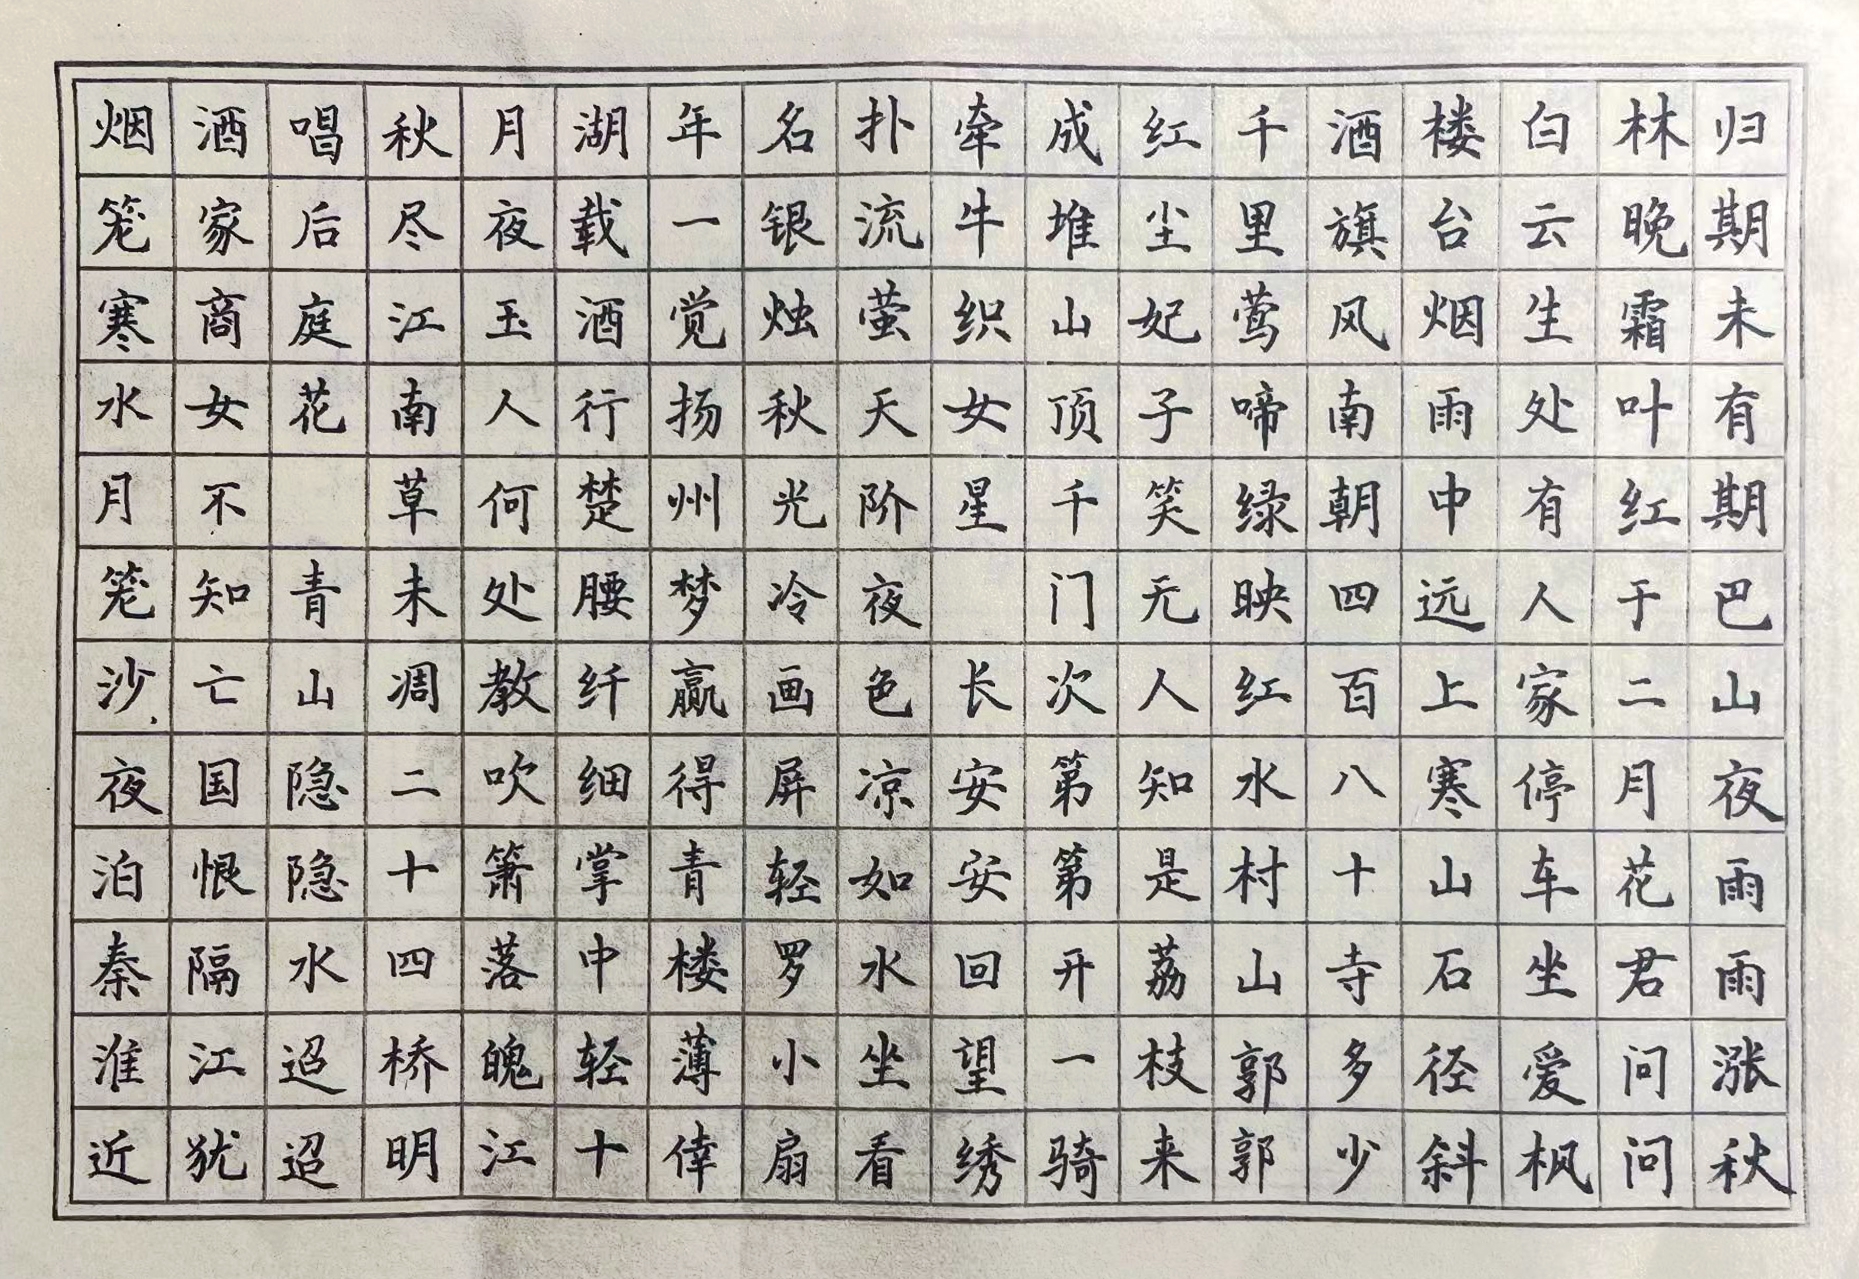 烟笼寒水月笼沙夜泊秦淮近
酒家商女不知亡国恨隔江犹
唱后庭花 青山隐隐水迢迢
秋尽江南草未凋二十四桥明
月夜玉人何处教吹箫落魄江
湖载酒行楚腰纤细掌中轻十
年一觉扬州梦赢得青楼薄倖
名银烛秋光冷画屏轻罗小扇
扑流萤天阶夜色凉如水坐看
牵牛织女星 长安安回望绣
成堆山顶千门次第第开一骑
红尘妃子笑无人知是荔枝来
千里莺啼绿映红水村山郭郭
酒旗风南朝四百八十寺多少
楼台烟雨中远上寒山石径斜
白云生处有人家停车坐爱枫
林晚霜叶红于二月花君问问
归期未有期巴山夜雨雨涨秋